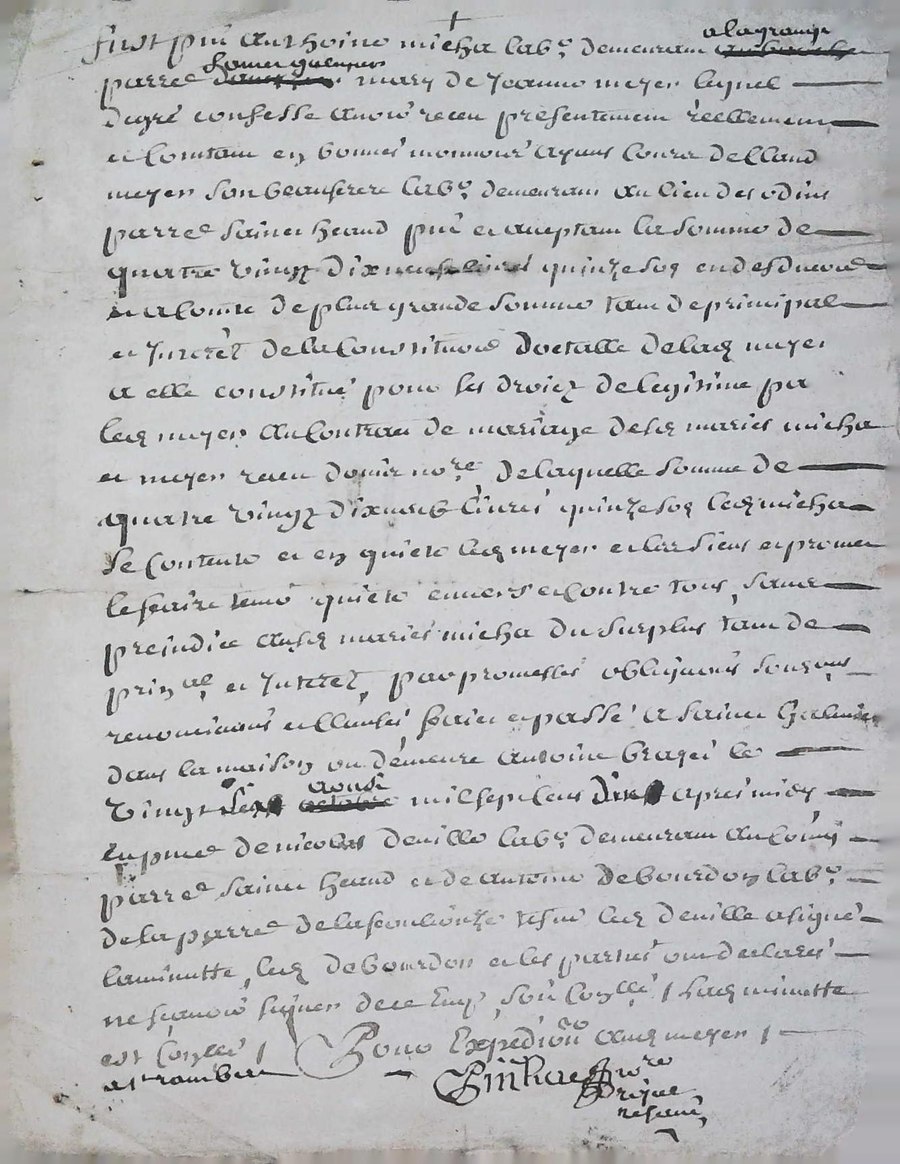 fust pnt anthoine micha labr demeurant a la grange
parre mary de Jeanne meyer lequel
de gré confesse avoir receu presentement reellement
et comtant en bonnes monnoies ayans cours de
meyer son beaufrere labr demeurant au lieu des odins
parre sainct heand pnt et aceptant la somme de
quatre vingt dix neuf livres quinze sos en desduction
et a comte de plus grande somme tant de principal
et Interet de la constitution dotalle de lad meyer
a elle constitué pour les droicz de legitime par
led meyer au contract de mariage desd mariés micha
et meyer receu nore de laquelle somme de
quatre vingt dix neuf livres quinze sos led micha
se contente et en quicte led meyer et les siens et promet
le faire tenir quicte envers et contre tous, sans
prejudice ausd mariés micha du surplus tant de
prinal et Interet, par promesses obligations
renonciations et clauses faict et passé a sainct Galmier
dans la maison ou demeure antoine le
vingt aoust mil sept cens apres midy
en pnce de nicolas deville labr demeurant au
parre sainct heand et de antoine debourdon labr
de la parre de la fouliouze led deville a signé
la minutte, led debourdon et les parties ont declarés
ne sçavoir signer de ce enqs, soit collé / lad minutte
est collée / Pour Expedition aud meyer /
a st rambert nore